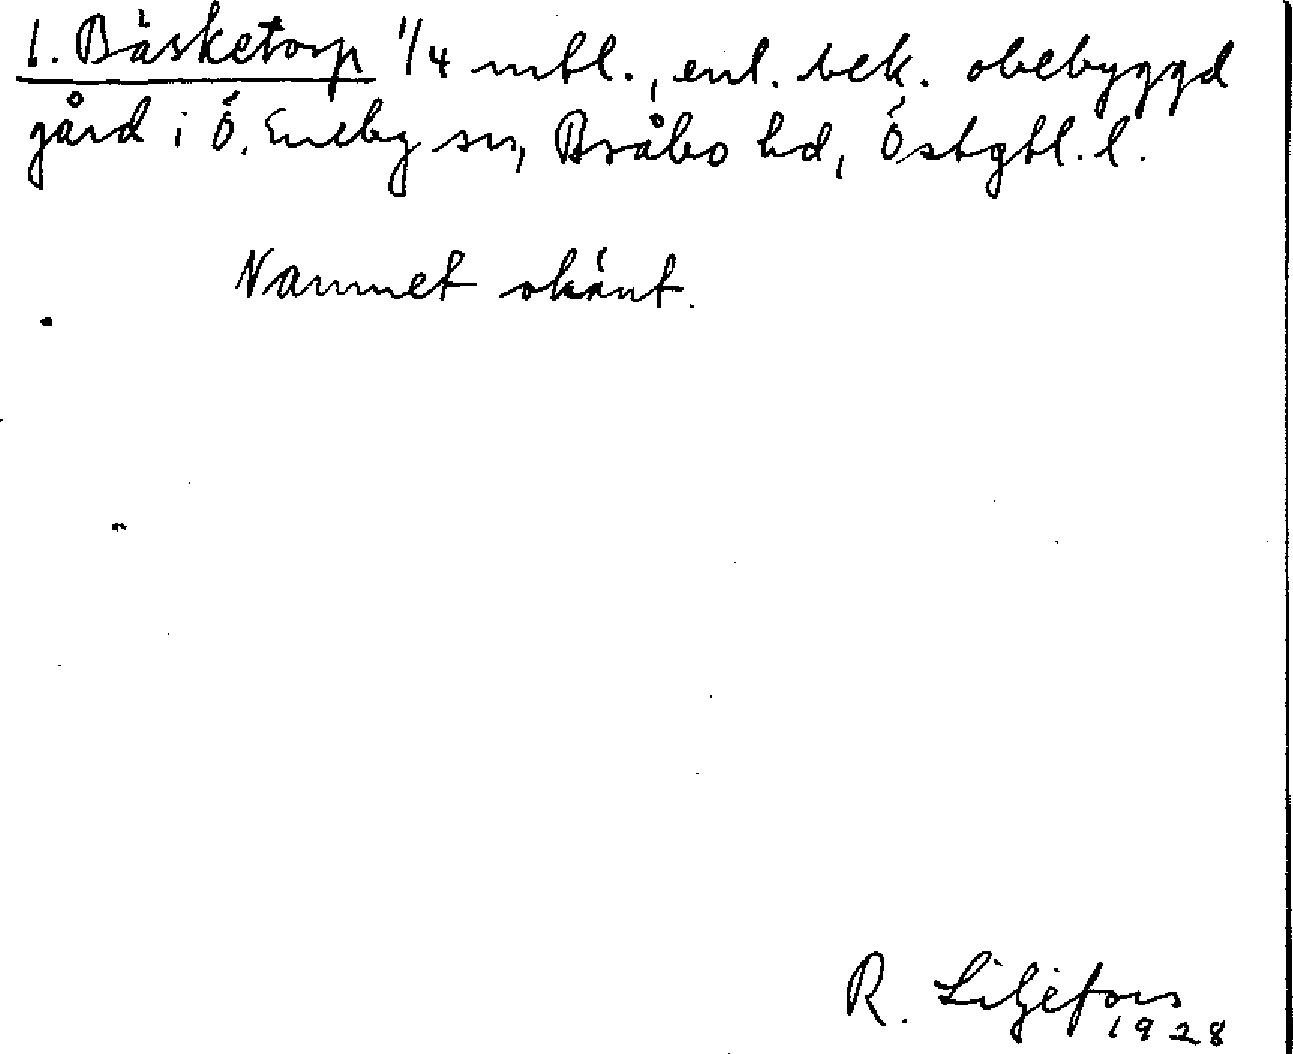 1. Bäsketorp 1/4 mtl., enl. bek. obebyggd
gård i Ö. Eneby sn, Bråbo hd, Östgtl. l.
Namnet okänt.
R. Liljefors
1928